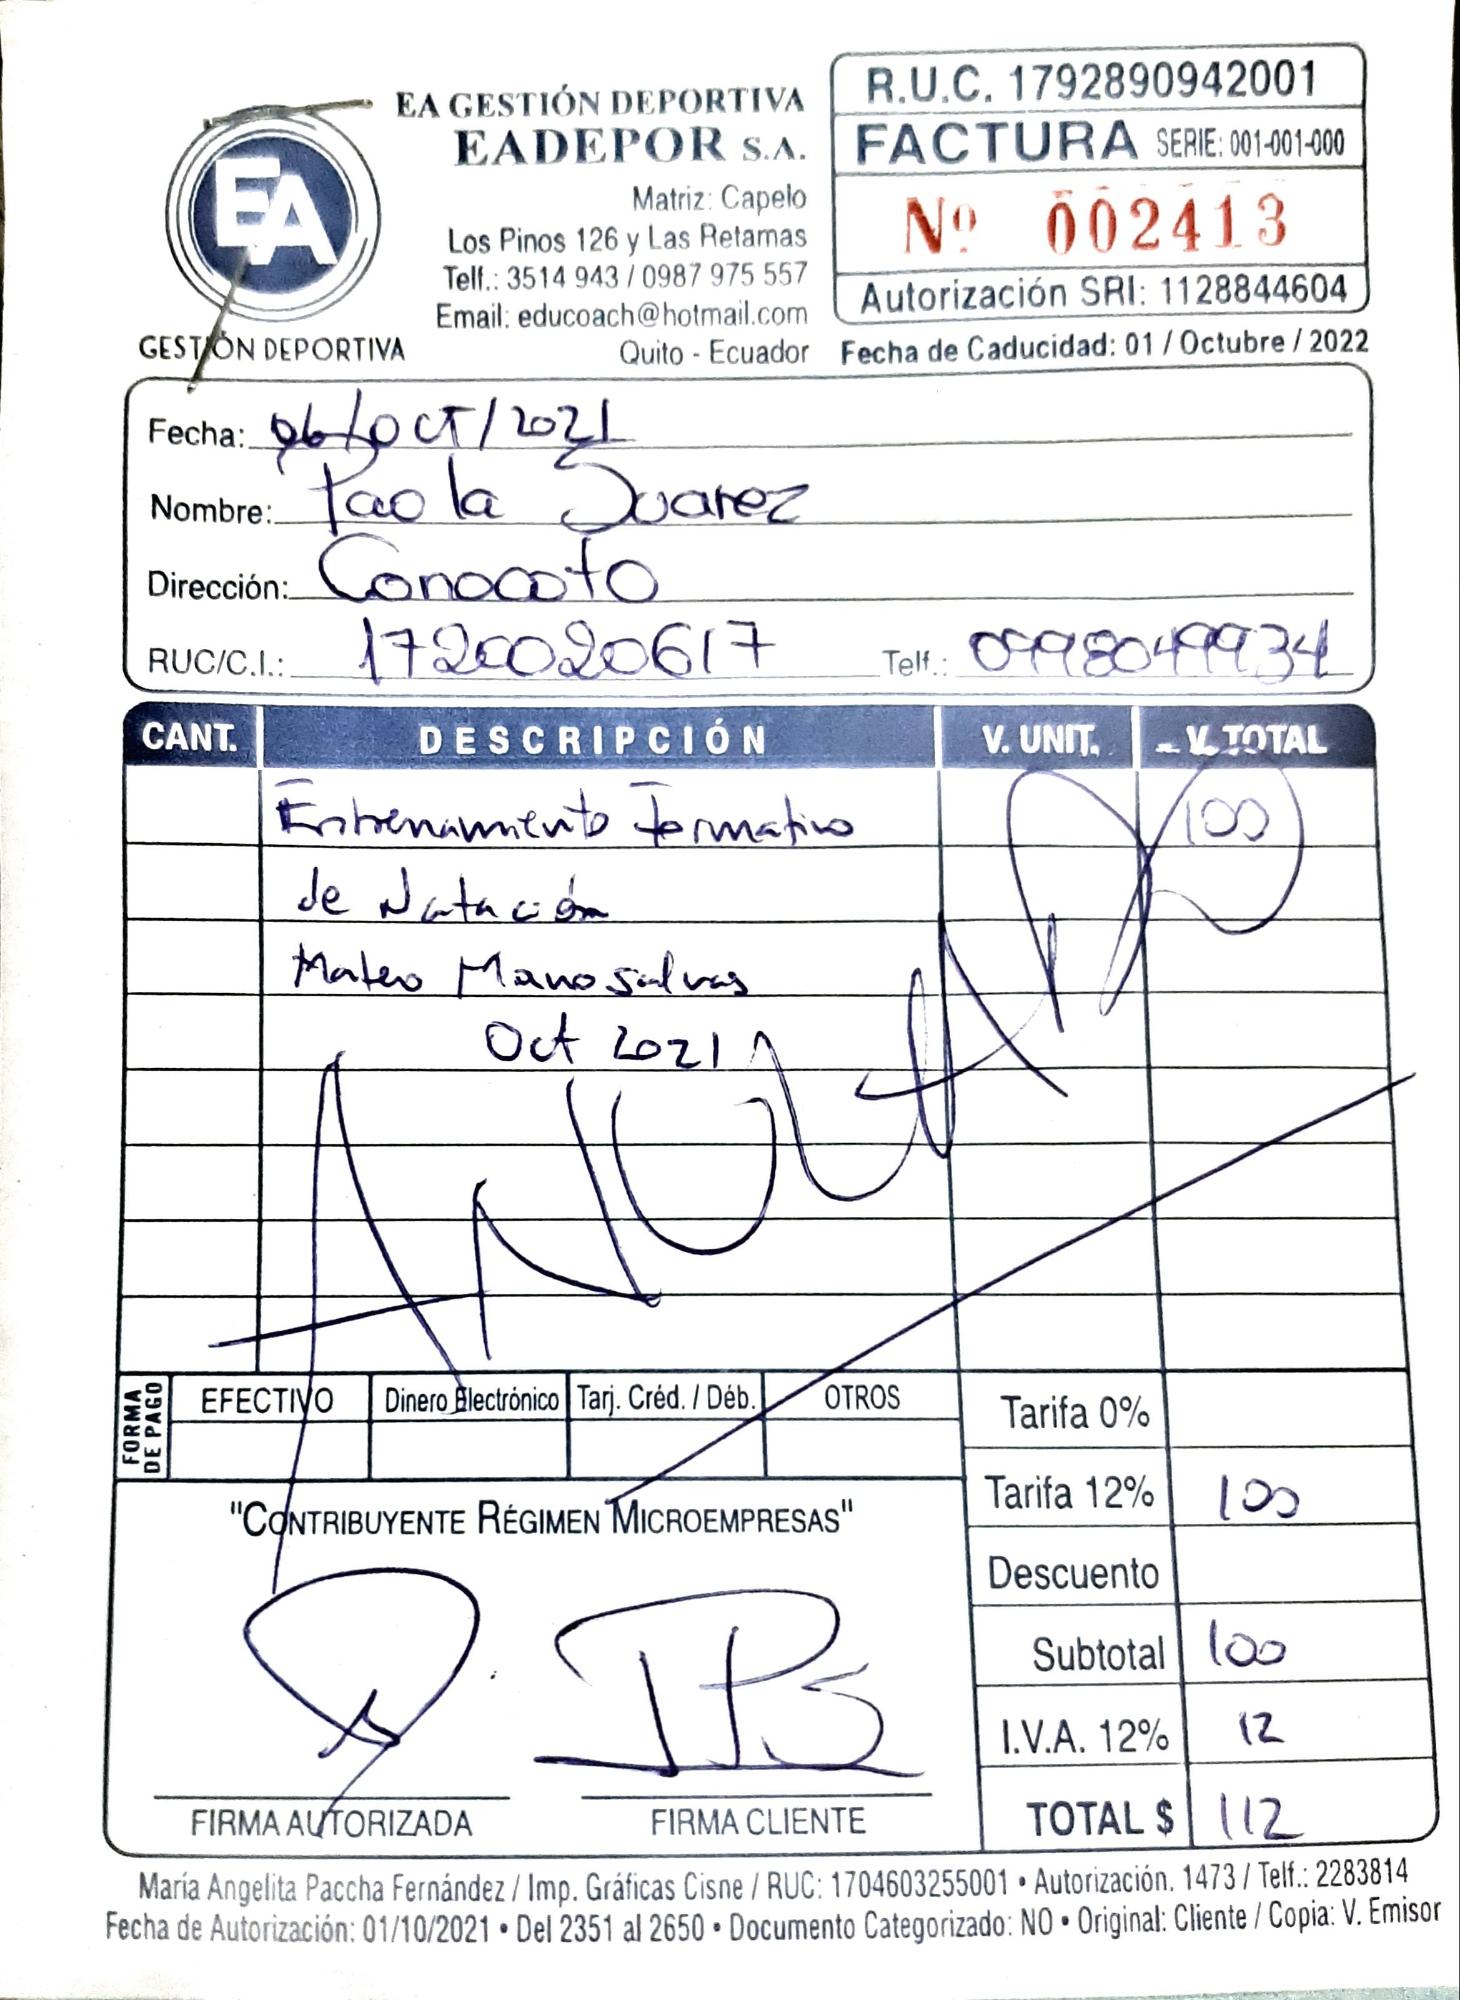 EA GESTIÓN DEPORTIVA
EADEPOR S.A.
Matriz: Capelo
Los Pinos 126 y Las Retamas
Telf.: 3514 943 / 0987 975 557
Email: educoach@hotmail.com
Quito - Ecuador
EA
GESTIÓN DEPORTIVA
R.U.C. 1792890942001
FACTURA SERIE: 001-001-000
Nº 002413
Autorización SRI: 1128844604
Fecha de Caducidad: 01 / Octubre / 2022
Fecha: 06/Oct/2021
Nombre: Paola Suarez
Dirección: Conocoto
RUC/C.I.: 1720020617 Telf.: 0998049934
CANT. DESCRIPCIÓN V. UNIT. V. TOTAL
Entrenamiento formativo 100
de Natación
Mateo Manosalvas
Oct 2021
ANULADO
FORMA DE PAGO EFECTIVO Dinero Electrónico Tarj. Créd. / Déb. OTROS
Tarifa 0%
Tarifa 12% 100
Descuento
Subtotal 100
I.V.A. 12% 12
TOTAL $ 112
"CONTRIBUYENTE RÉGIMEN MICROEMPRESAS"
FIRMA AUTORIZADA FIRMA CLIENTE
María Angelita Paccha Fernández / Imp. Gráficas Cisne / RUC: 1704603255001 • Autorización. 1473 / Telf.: 2283814
Fecha de Autorización: 01/10/2021 • Del 2351 al 2650 • Documento Categorizado: NO • Original: Cliente / Copia: V. Emisor